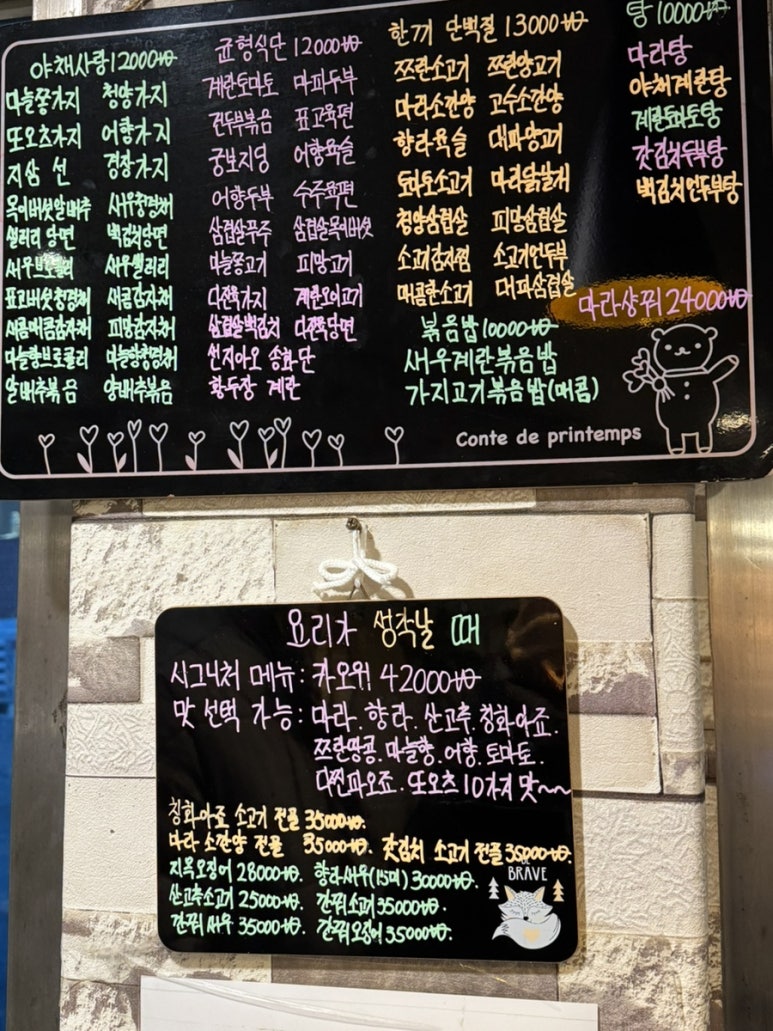 야채사랑 12000₩
마늘쫑가지 청양가지
또오츠가지 어향가지
지삼선 경장가지
목이버섯알배추 새우청경채
샐러리 당면 백김치당면
새우브로콜리 새우샐러리
표고버섯청경채 새콤감자채
새콤매콤감자채 피망감자채
마늘향브로콜리 마늘향청경채
알배추볶음 양배추볶음
균형식단 12000₩
계란토마토 마파두부
건두부볶음 표고육편
궁보지딩 어향육슬
어향두부 수주육편
삼겹살부추 삼겹살목이버섯
마늘쫑고기 피망고기
다진육가지 계란오이고기
삼겹살백김치 다진육당면
선지아오 송화단
황두장 계란
한끼 단백질 13000₩
쯔란소고기 쯔란양고기
마라소깐양 고수소깐양
향라육슬 대파양고기
토마토소고기 마라닭날개
청양삼겹살 피망삼겹살
소고기감자찜 소고기언두부
매콤한소고기 대파삼겹살
볶음밥 10000₩
새우계란볶음밥
가지고기볶음밥(매콤)
탕 10000₩
마라탕
야채계란탕
계란토마토탕
갓김치두부탕
백김치언두부탕
마라샹궈 24000₩
Conte de printemps
요리가 생각날 때
시그니처 메뉴: 카오위 42000₩
맛 선택 가능: 마라. 향라. 산고추. 칭화아죠.
쯔란땅콩. 마늘향. 어향. 토마토.
다진파오죠. 또오츠 10가지 맛~~
칭화아죠 소고기 전골 35000₩.
마라 소깐양 전골 35000₩. 갓김치 소고기 전골 35000₩.
지목오징어 28000₩. 향라새우(15미) 30000₩.
산고추소고기 25000₩. 간궈소고기 35000₩.
간궈새우 35000₩. 간궈오징어 35000₩.
BE
BRAVE